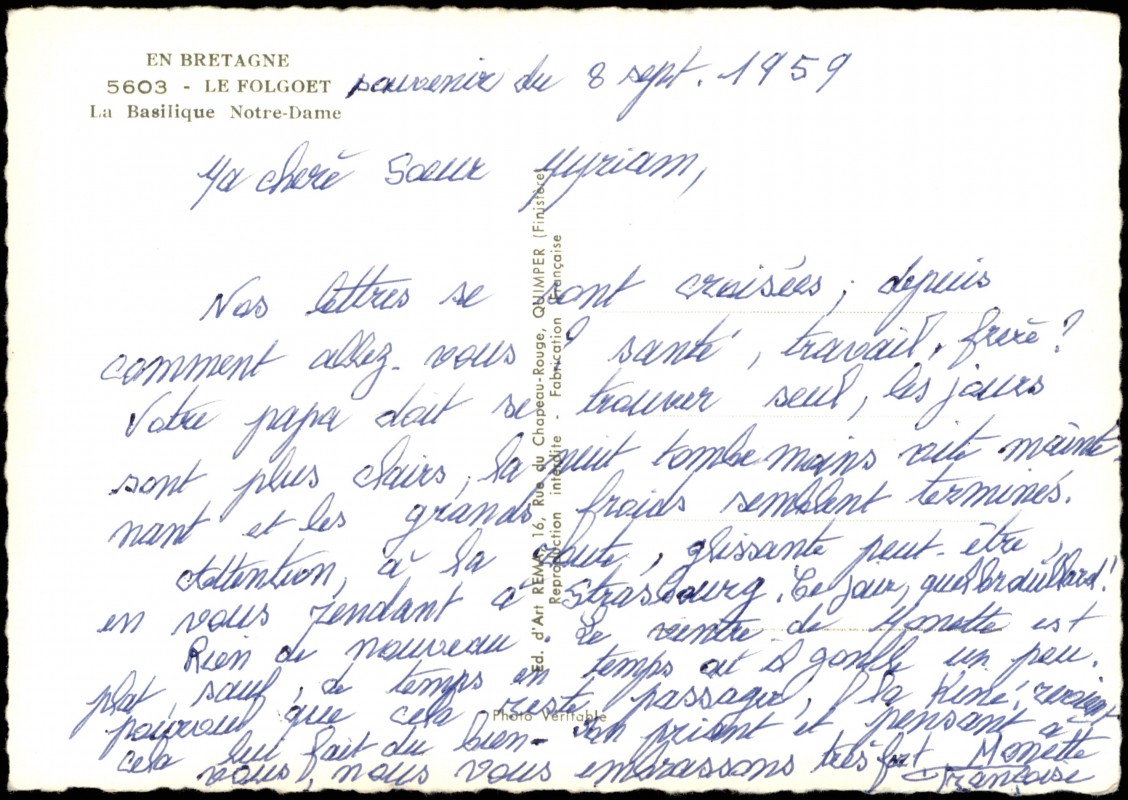 EN BRETAGNE
5603 - LE FOLGOET
La Basilique Notre-Dame
souvenir du 8 sept. 1959
Ma cherè Soeur Myriam,
Nos lettres se sont croisées ; depuis
comment allez-vous ? santé, travail, frère ?
Votre papa doit se trouver seul, les jours
sont plus clairs, la nuit tombe moins vite mainte
nant et les grands froids semblent terminés.
Attention, à la route, glissante peut-être,
en vous rendant à Strasbourg. Ce jour, quel brouillard !
Rien de nouveau. Le ventre de Monette est
plat, sauf, de temps en temps où il gonfle un peu.
pourvu que cela reste passager, la Kiné, revient
cela lui fait du bien - En priant et pensant à
vous, nous vous embrassons très fort Monette
Françoise
Ed. d'Art REMA, 16, Rue du Chapeau-Rouge, QUIMPER (Finistère)
Reproduction interdite - Fabrication Française
Photo Véritable